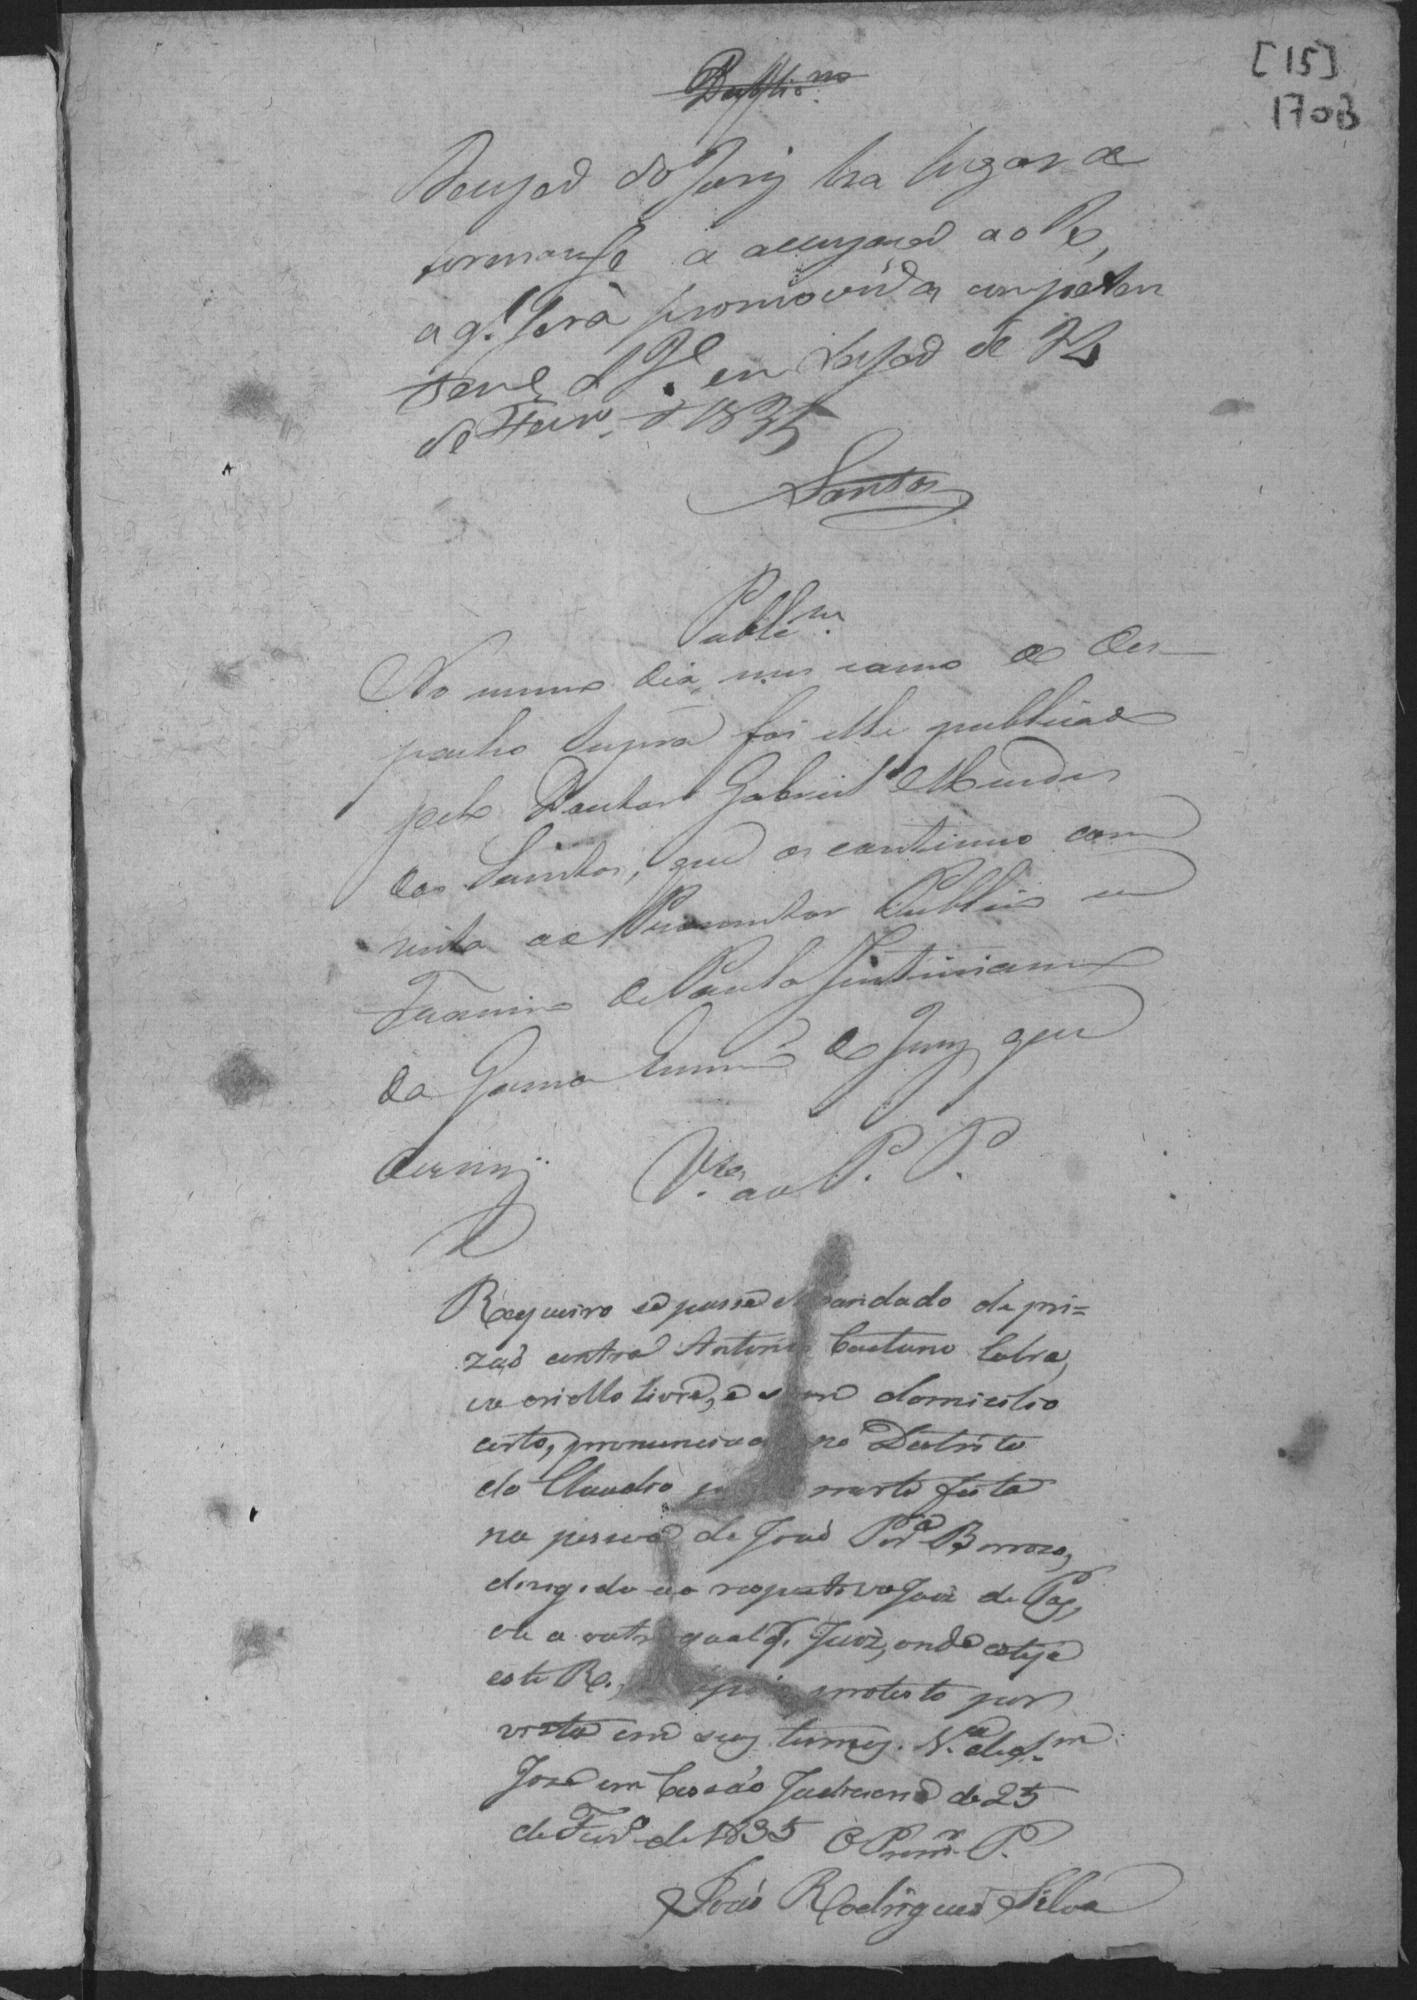 [15]
1703
do Jury ha lugar a
formarse a accusação ao Re,
a q.l será promovida competen
tem.e S. J.e em de 24
de Fevr.o d 1835
Santos
Publi.m
No mesmo dia, mes e anno do des-
pacho supra foi elle publicado
pelo Doutor Gabriel Mendes
dos Santos, que os continuo com
vista ao Promutor Publico eu
Francisco de Paula Justiniano
da Gama Escrivão do Jury que
escrevy.
V.ta ao P. P.
Requeiro se passe Mandado de pri=
zaõ contra Antonio Caetano Cabra,
ou criollo livre, e sem domicilio
certo, pronunciado no Destrito
do Claudio morte feita
na pessoa de Joaõ Per.a Barrozo,
dirigido ao respectivo Juiz de Paz,
ou a outro qualq.r Juiz, onde esteja
este Re, protesto por
vista em seus termos. V.a de S.m
Jose em Cessão Judiciaria de 25
de Fevr.o de 1835 O Prom.r P.
João Rodrigues Silva